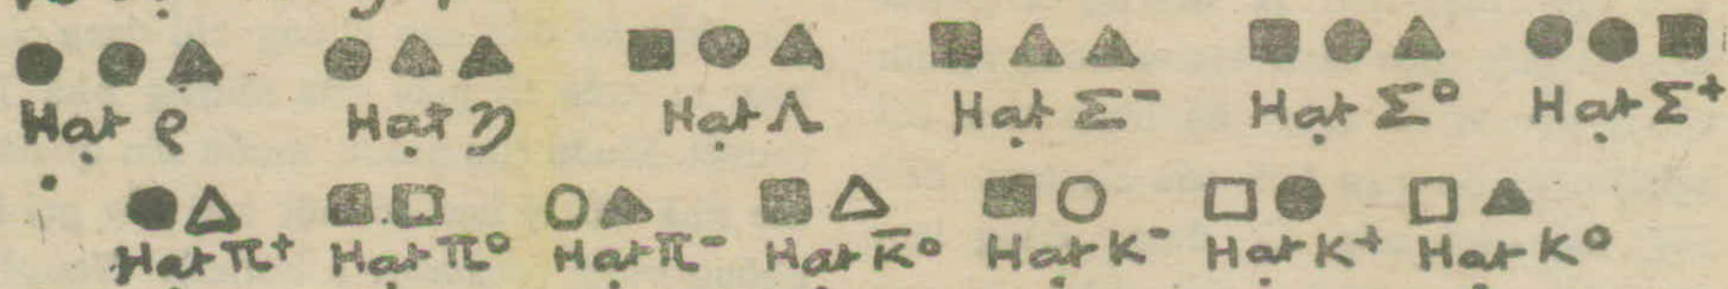 Hạt ρ Hạt η Hạt Λ Hạt Σ⁻ Hạt Σ⁰ Hạt Σ⁺
Hạt π⁺ Hạt π⁰ Hạt π⁻ Hạt K̄⁰ Hạt K⁻ Hạt K⁺ Hạt K⁰